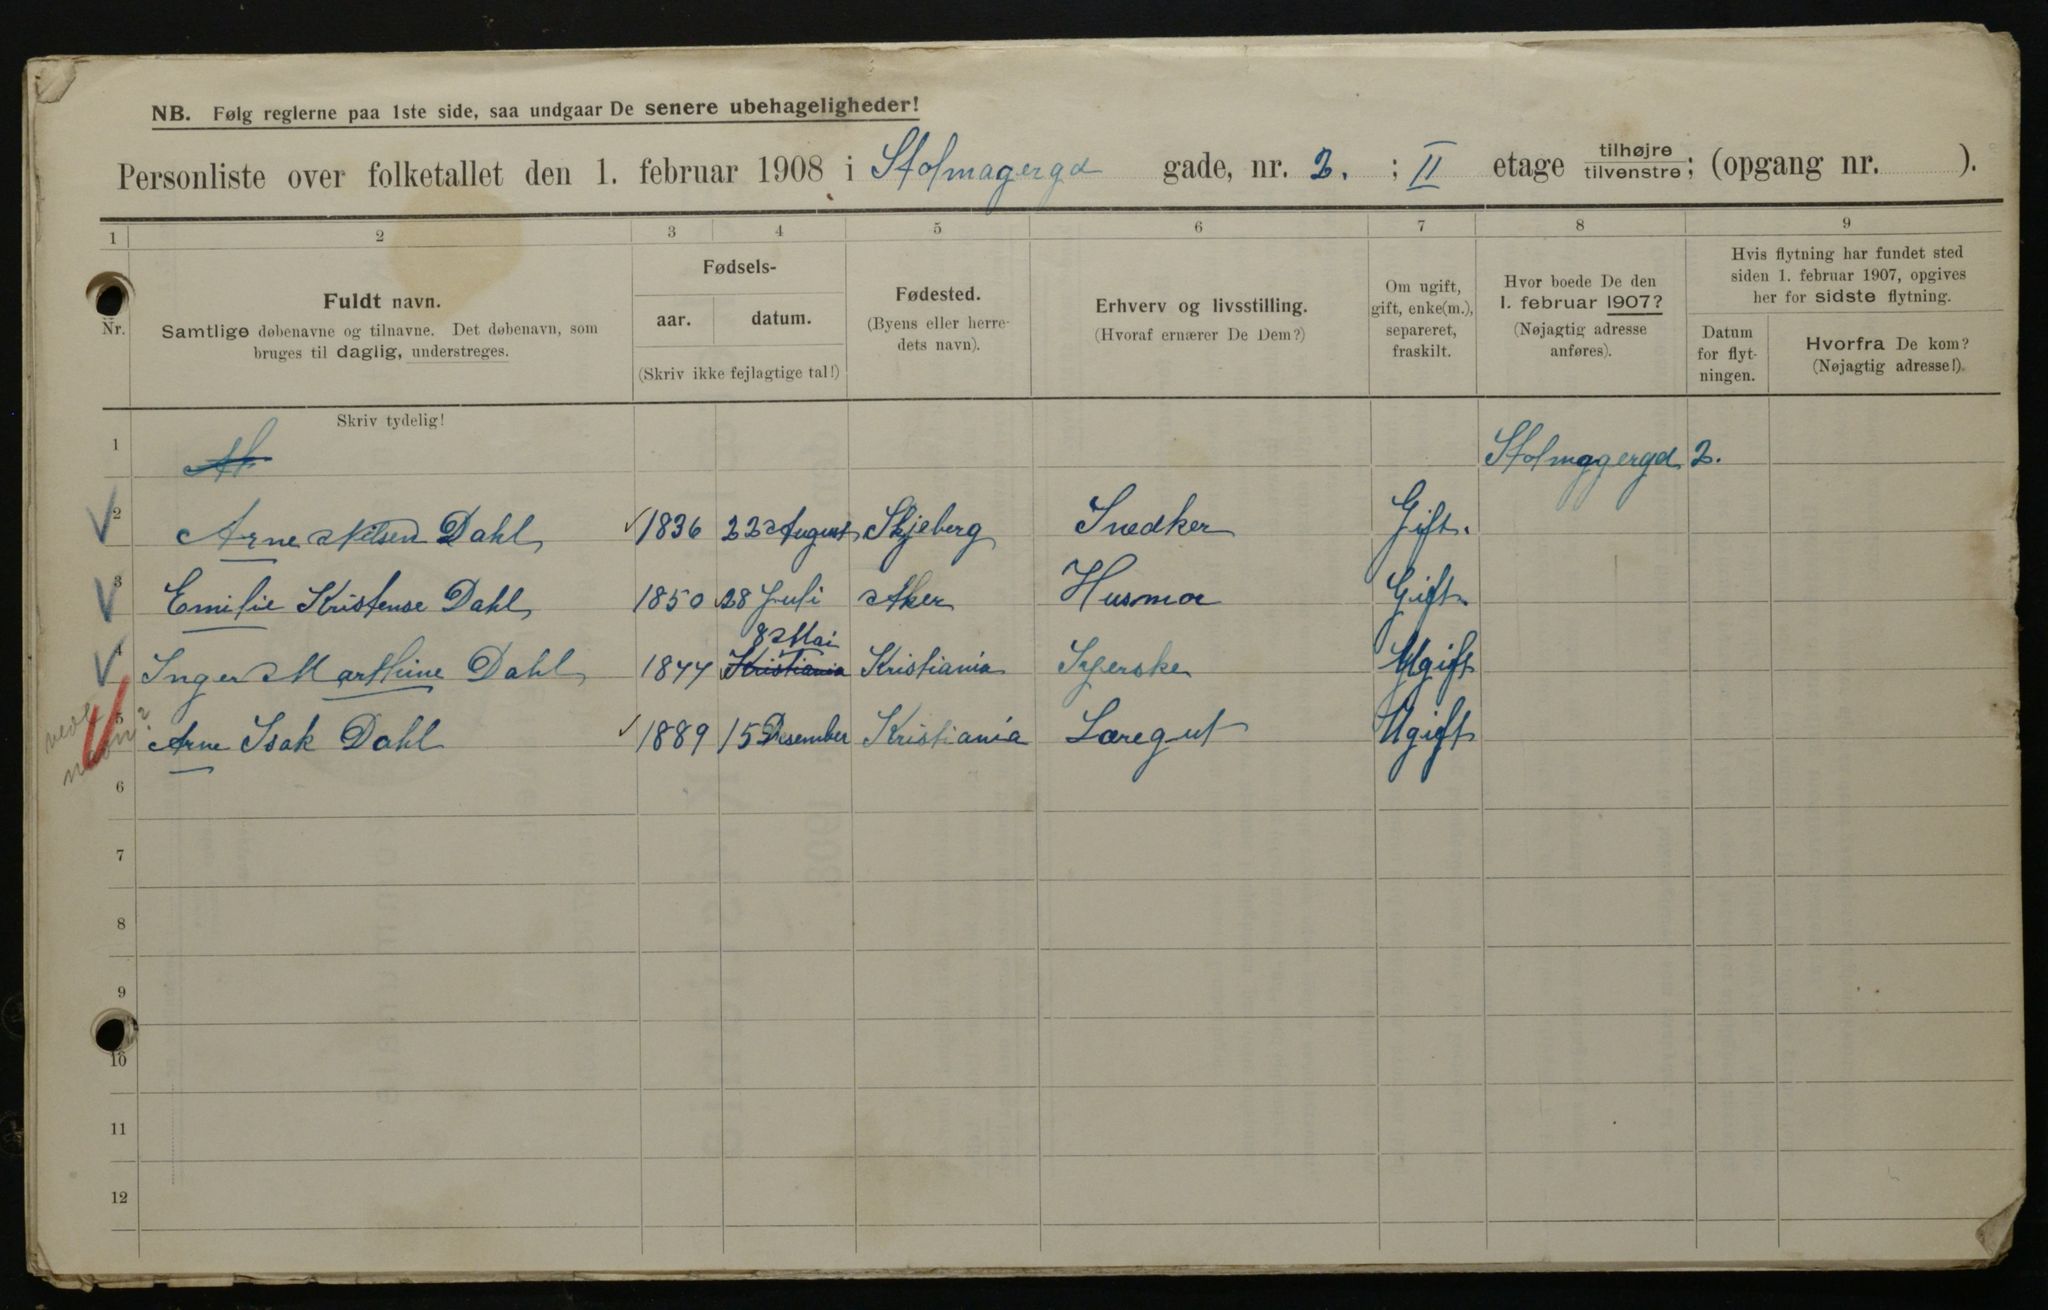 NB. Følg reglerne paa 1ste side, saa undgaar De senere ubehageligheder!
Personliste over folketallet den 1. februar 1908 i Stolmagergd gade, nr. 2. ; II etage tilhøjre tilvenstre; (opgang nr. ).
1 2 3 4 5 6 7 8 9
Nr.
Fuldt navn.
Samtlige døbenavne og tilnavne. Det døbenavn, som
bruges til daglig, understreges.
Fødsels-
aar. datum.
(Skriv ikke fejlagtige tal!)
Fødested.
(Byens eller herre-
dets navn).
Erhverv og livsstilling.
(Hvoraf ernærer De Dem?)
Om ugift,
gift, enke(m.),
separeret,
fraskilt.
Hvor boede De den
1. februar 1907?
(Nøjagtig adresse
anføres).
Hvis flytning har fundet sted
siden 1. februar 1907, opgives
her for sidste flytning.
Datum
for flyt-
ningen.
Hvorfra De kom?
(Nøjagtig adresse!).
Skriv tydelig!
1 Stolmagergd 2.
2 Arne Nilsen Dahl 1836 22 August Skjeberg Snedker Gift.
3 Emilie Kristense Dahl 1850 28 Juli Aker Husmor Gift.
8 Mai
4 Inger Marthine Dahl 1877 Kristiania Kristiania Syerske Ugift
5 Arne Isak Dahl 1889 15 Desember Kristiania Læregut Ugift
6
7
8
9
10
11
12